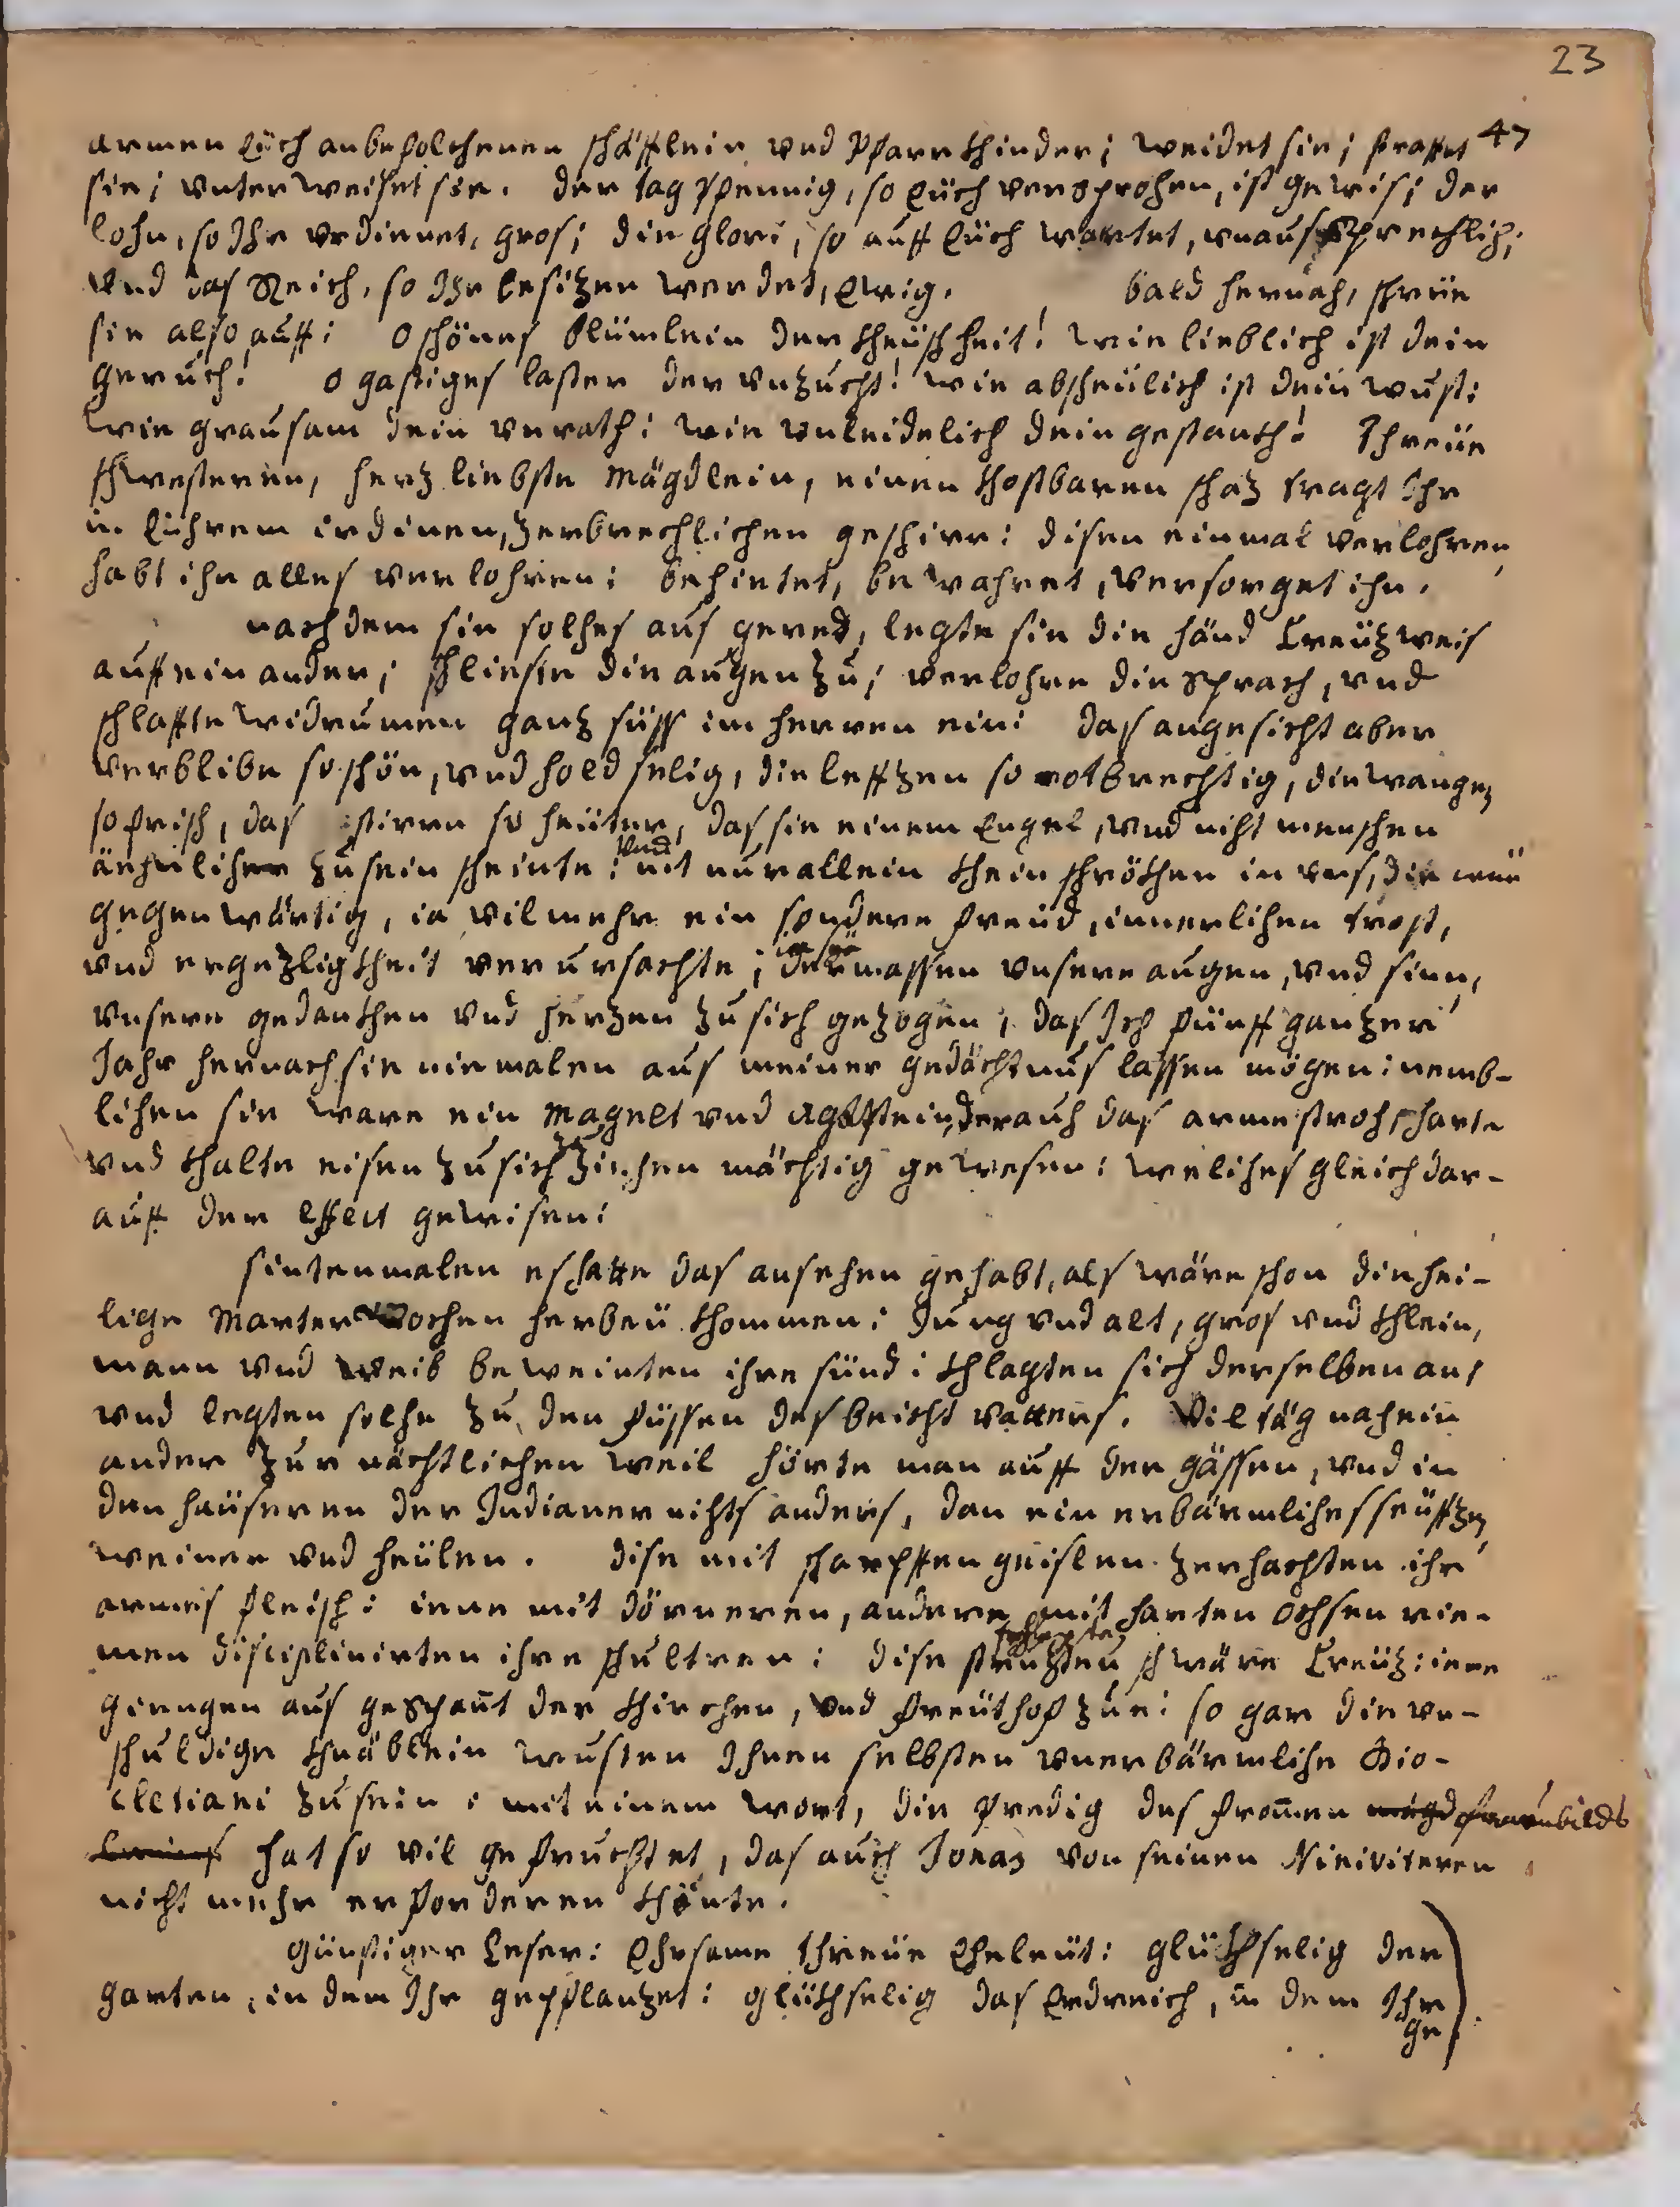 23
47
armen Eüch anbefolchenen schäfflein vnd Pfarrkhinder; weidet sie; straffet
sie; vnterweiset sie. der tag pfennig, so Eüch versprohen, ist gewis; der
lohn, so Ihr verdienet, gros; die glori, so auff Eüch wartet, vnaussprechlich;
Vnd das Reich, so Ihr besitzen werdet, Ewig. bald hernach, schreüe
sie also auff: O schönes blüemlein der kheüschheit! wie lieblich ist dein
geruch! o gastiges laster der vnzucht! wie abscheülich ist dein wust:
wie grausam dein vnrath: wie vnleidelich dein gestankh! Threüe
schwesteren, herzliebste Mägdlein, einen khostbaren schaz tragt Ihr
in Eührem irdinen, zerbrechlichen geschirr: disen einmal verlohren,
habt ihr alles verlohren: behietet, bewahret, versorget ihn.
nachdem sie solhes aus gered, legte sie die händ Creützweis
auffeinander; schlieste die augen zu; verlohre die sprach, vnd
schlaffte widrumen ganz süss im herren ein: das angesicht aber
verblibe so schön, vnd holdselig, die leffzen so rotbrechtig, die wangen
so frisch, das stirn so heüter, das sie einem Engel, vnd niht menschen
änhlicher zu sein scheinte: Vnd nit nur allein khein schrökhen in vns, die wür
gegenwärtig, ia vilmehr ein sondere freüd, innerlihen trost,
vnd ergezligkheit verursachte; dermassen vnsere augen, vnd sinn,
vnsere gedankhen vnd herzen zu sich gezogen, das Ich fünff ganzer
Jahr hernach sie niemalen aus meiner gedächtnus lassen mögen: nemb-
lihen sie ware ein Magnet vnd Agtstein, der auch das arme stroh, harte
vnd khalte eisen zu sich zu ziehen mächtig gewesen: welihes gleich dar-
auff der effect gewisen:
sintenmalen es hatte das ansehen gehabt, als wäre schon die hei-
lige Marterwochen herbeü khommen: Jung vnd alt, gros vnd khlein,
mann vnd weib beweinten ihre sünd: khlagten sich derselben an,
vnd legten solhe zu den füssen des beicht vatters. Vil täg nahein
ander zur nächtlichen weil hörte man auff der gässen, vnd in
den haüseren der Indianer nihts anders, dan ein erbärmlihes seüffzen,
weinen vnd heülen. dise mit scharpffen geislen zerhackhten ihr
armes fleisch: iene mit dörneren, andere mit harten ochsen rie-
men disciplinirten ihre schultren: dise schlepten schwäre Creütz: iene
giengen aus gespant der khirchen, vnd freüthof zue: so gar die vn-
schuldige khnäblein wusten Ihnen selbsten vnerbärmlihe Dio-
cletiani zu sein: mit einem wort, die predig des fromen frauenbilds
hat so vil gefruchtet, das auch Jonas von seinen Niniviteren
nicht mehr erforderen khönte.
Günstiger Leser: Ehrsame threüe Eheleüt: glükhselig der
garten, in dem Ihr gepflanzet: glükhselig das Erdreich, in dem Ihr
ge